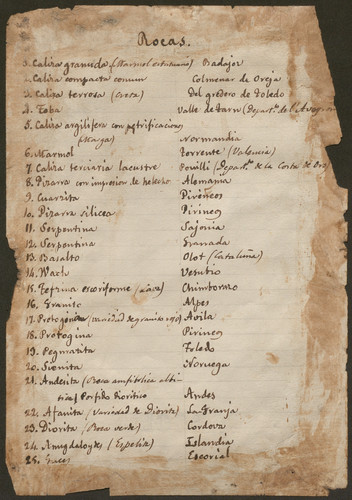 Rocas.
1. Caliza granuda (Marmol estatuario) Badajoz
2. Caliza compacta comun Colmenar de Oreja
3. Caliza terrosa (Creta) Del gredero de Toledo
4. Toba Valle de Tarn (Depart.º de l'Aveyron
5. Caliza argilifera con petrificaciones
(Marga) Normandia
6. Marmol Torrente (Valencia)
7. Caliza terciaria lacustre Pouilli (Depart.º de la Costa de Oro
8. Pizarra con impresion de helecho Alemania
9. Cuarzita Pirineos
10. Pizarra silicea Pirineos
11. Serpentina Sajonia
12. Serpentina Granada
13. Basalto Olot (Cataluña)
14. Vesubio
15. Tefrina escoriforme (Lava) Chimborazo
16. Granito Alpes
17. Protogina (variedad de granito) Avila
18. Protogina Pirineos
19. Pegmatita Toledo
20. Sienita Noruega
21. Andesita (Roca anfibolica albi-
tica) Porfido dioritico Andes
22. Afanita (Variedad de Diorita) La Granja
23. Diorita (Roca verde) Cordova
24. Amygdaloydes (Espilita) Islandia
25. Gneis Escorial